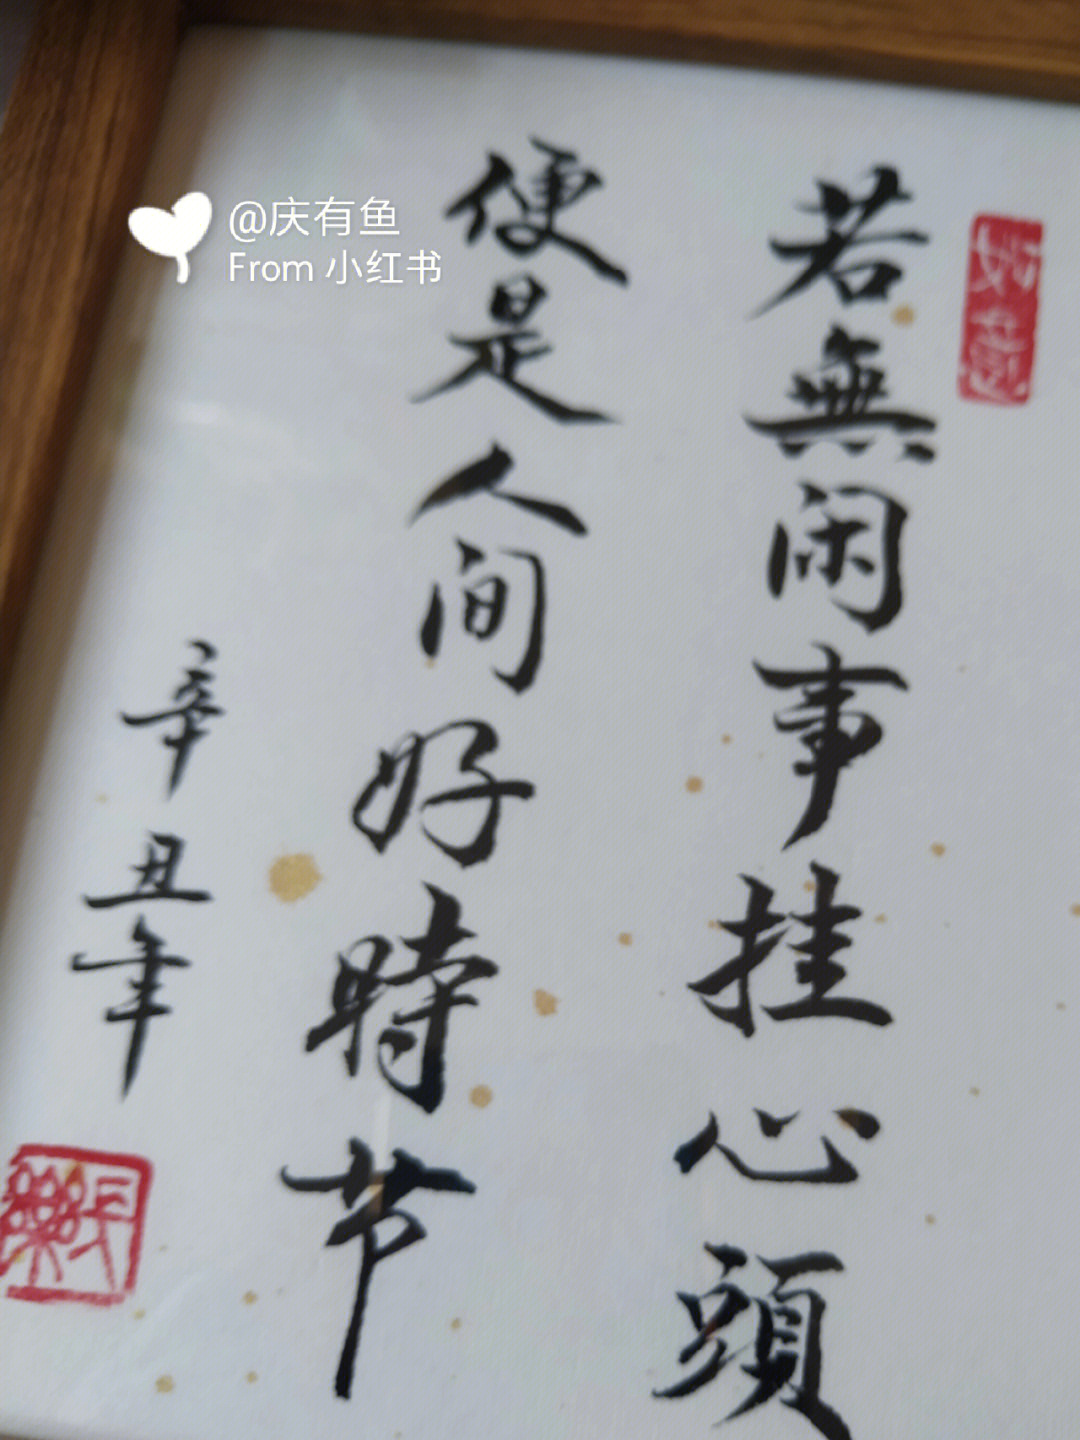 @庆有鱼
From 小红书
如意
若無闲事挂心頭
便是人间好時节
辛丑年